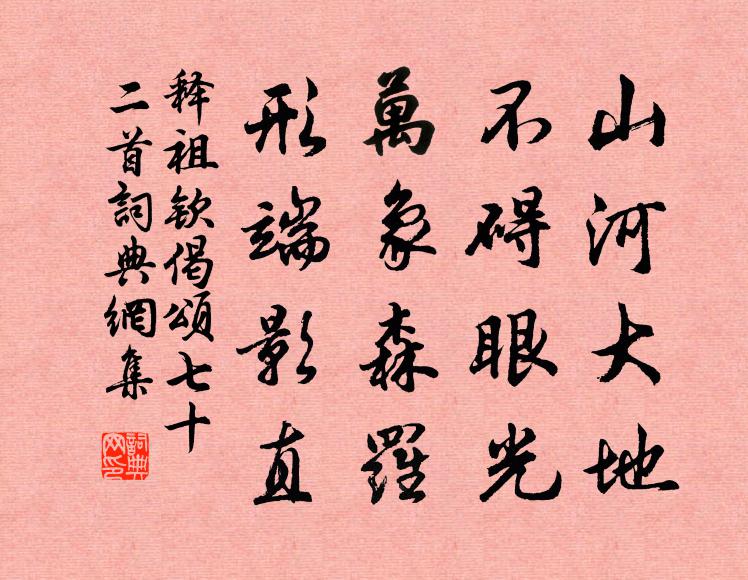 山河大地
不碍眼光
萬象森羅
形端影直
释祖钦偈頌七十
二首詞典網集
詞典
网印